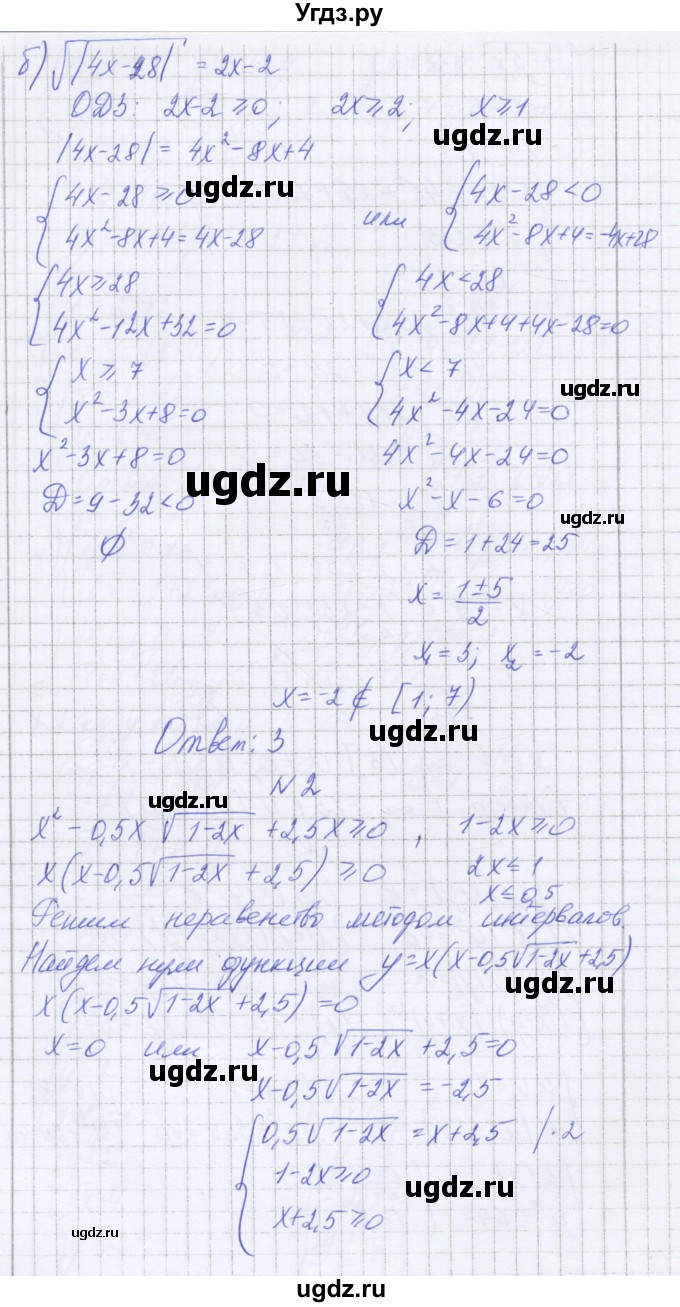 Угдз.ру
б) √|4x-28| = 2x-2
ОДЗ: 2x-2 ≥ 0; 2x ≥ 2; x ≥ 1
ugdz.ru
|4x-28| = 4x²-8x+4
ugdz.ru
{ 4x-28 ≥ 0 или { 4x-28 < 0
4x²-8x+4 = 4x-28 4x²-8x+4 = -4x+28
{ 4x ≥ 28 { 4x < 28
4x²-12x+32=0 4x²-8x+4+4x-28=0
{ x ≥ 7 { x < 7
ugdz.ru
x²-3x+8=0 4x²-4x-24=0
x²-3x+8=0 4x²-4x-24=0
ugdz.ru
D = 9-32<0 x²-x-6=0
ugdz.ru
∅ D = 1+24=25
x = (1±5)/2
x₁ = 3; x₂ = -2
x = -2 ∉ [1; 7)
ugdz.ru
Ответ: 3
N 2
ugdz.ru
x² - 0,5x √1-2x + 2,5x ≥ 0, 1-2x ≥ 0
x(x-0,5√1-2x + 2,5) ≥ 0 2x ≤ 1
x ≤ 0,5
Решим неравенство методом интервалов.
Найдем нули функции y=x(x-0,5√1-2x+2,5)
ugdz.ru
x(x-0,5√1-2x + 2,5) = 0
x=0 или x-0,5√1-2x + 2,5=0
ugdz.ru
x-0,5√1-2x = -2,5
{ 0,5√1-2x = x+2,5 /·2
1-2x ≥ 0
ugdz.ru
x+2,5 ≥ 0
ugdz.ru
ugdz.ru